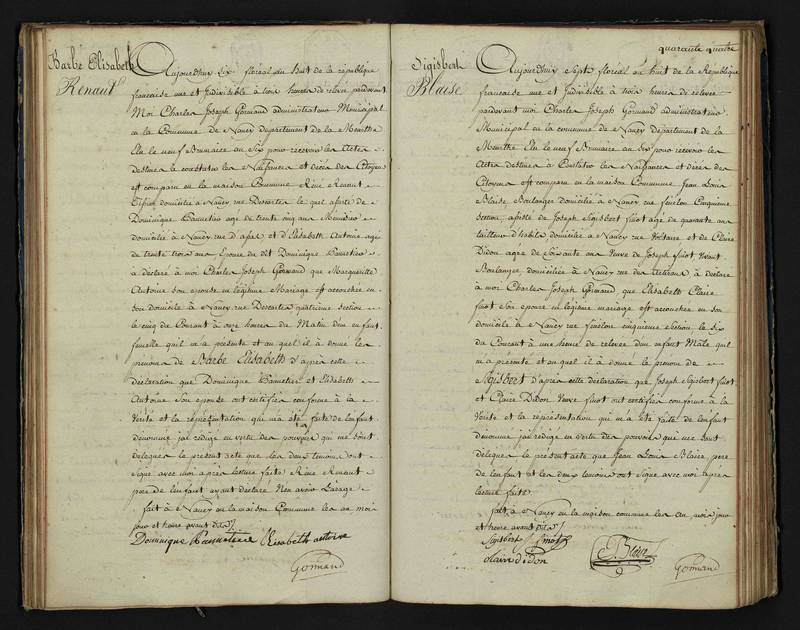 Barbe Elisabeth
Renaut
Aujourd'huy six floréal an huit de la république
francaise une et Indivisible à trois heures de relevée pardevant
Moi Charles Joseph Gormand administrateur Municipal
en la Commune de Nancy Departement de la Meurthe
Elu le neuf Brumaire an Six pour recevoir les Actes
destinés à constater les Naissances et décès des Citoyens
est comparu en la maison Commune Réné Renaut
domicilié à Nancy rue Descartes le quel assisté de
Dominique agé de trente cinq ans Menuisier
domicilié à Nancy rue d' et d'Elisabeth Antoine agée
de trente trois ans Epouse du dit Dominique
a déclaré à moi Charles Joseph Gormand que Marguerite
Antoine son epouse en légitime Mariage est accouchée en
son domicile à Nancy rue Descartes quatrième section
le cinq du Courant à onze heures du Matin d'un enfant
femelle qu'il m'a présenté et au quel il a donné les
prénoms de Barbe Elisabeth d'après cette
déclaration que Dominique et Elisabeth
Antoine Son epouse ont certifiée conforme à la
Vérité et la représentation qui m'a été faite de l'enfant
dénommé j'ai rédigé en vertu des pouvoirs qui me sont
delegués le présent acte que les deux temoins ont
signé avec moi après lecture faite Réné Renaut
père de l'enfant ayant déclaré N'en avoir l'usage
fait à Nancy en la maison Commune les an mois
jour et heure avant dits
Dominique Elisabeth antoine
Gormand
quarante quatre
Sigisbert
Blaise
Aujourd'huy Sept floréal an huit de la République
francaise une et Indivisible à trois heures de relevée
pardevant moi Charles Joseph Gormand administrateur
Municipal en la commune de Nancy departement de la
Meurthe Elu le neuf Brumaire an six pour recevoir les
Actes destinés à Constater les Naissances et décès des
Citoyens est comparu en la maison Commune Jean Louis
Blaise Boulanger domicilié à Nancy rue fenelon Cinquieme
section, assisté de Joseph Sigisbert agé de quarante ans
tailleur d'habits domicilié à Nancy rue Voltaire et de Claire
Didon agée de Soixante ans Veuve de Joseph vivant
Boulanger domiciliée à Nancy rue des a déclaré
à moi Charles Joseph Gormand que Elisabeth Claire
son epouse en légitime mariage est accouchée en son
domicile à Nancy rue fenelon cinquieme section le six
du Courant à une heure de relevée d'un enfant Mâle qu'il
m'a présenté et au quel il a donné le prenom de
Sigisbert d'après cette déclaration que Joseph Sigisbert
et Claire Didon Veuve ont certifiée conforme à la
Vérité et la représentation qui m'a été faite de l'enfant
dénommé j'ai rédigé en vertu des pouvoirs qui me sont
delegués le présent acte que Jean Louis Blaise pere
de l'enfant et les deux temoins ont signé avec moi après
lecture faite
fait à Nancy en la maison commune les an mois jour
et heure avant dits
Sigisbert
claire didon
Blaise
Gormand